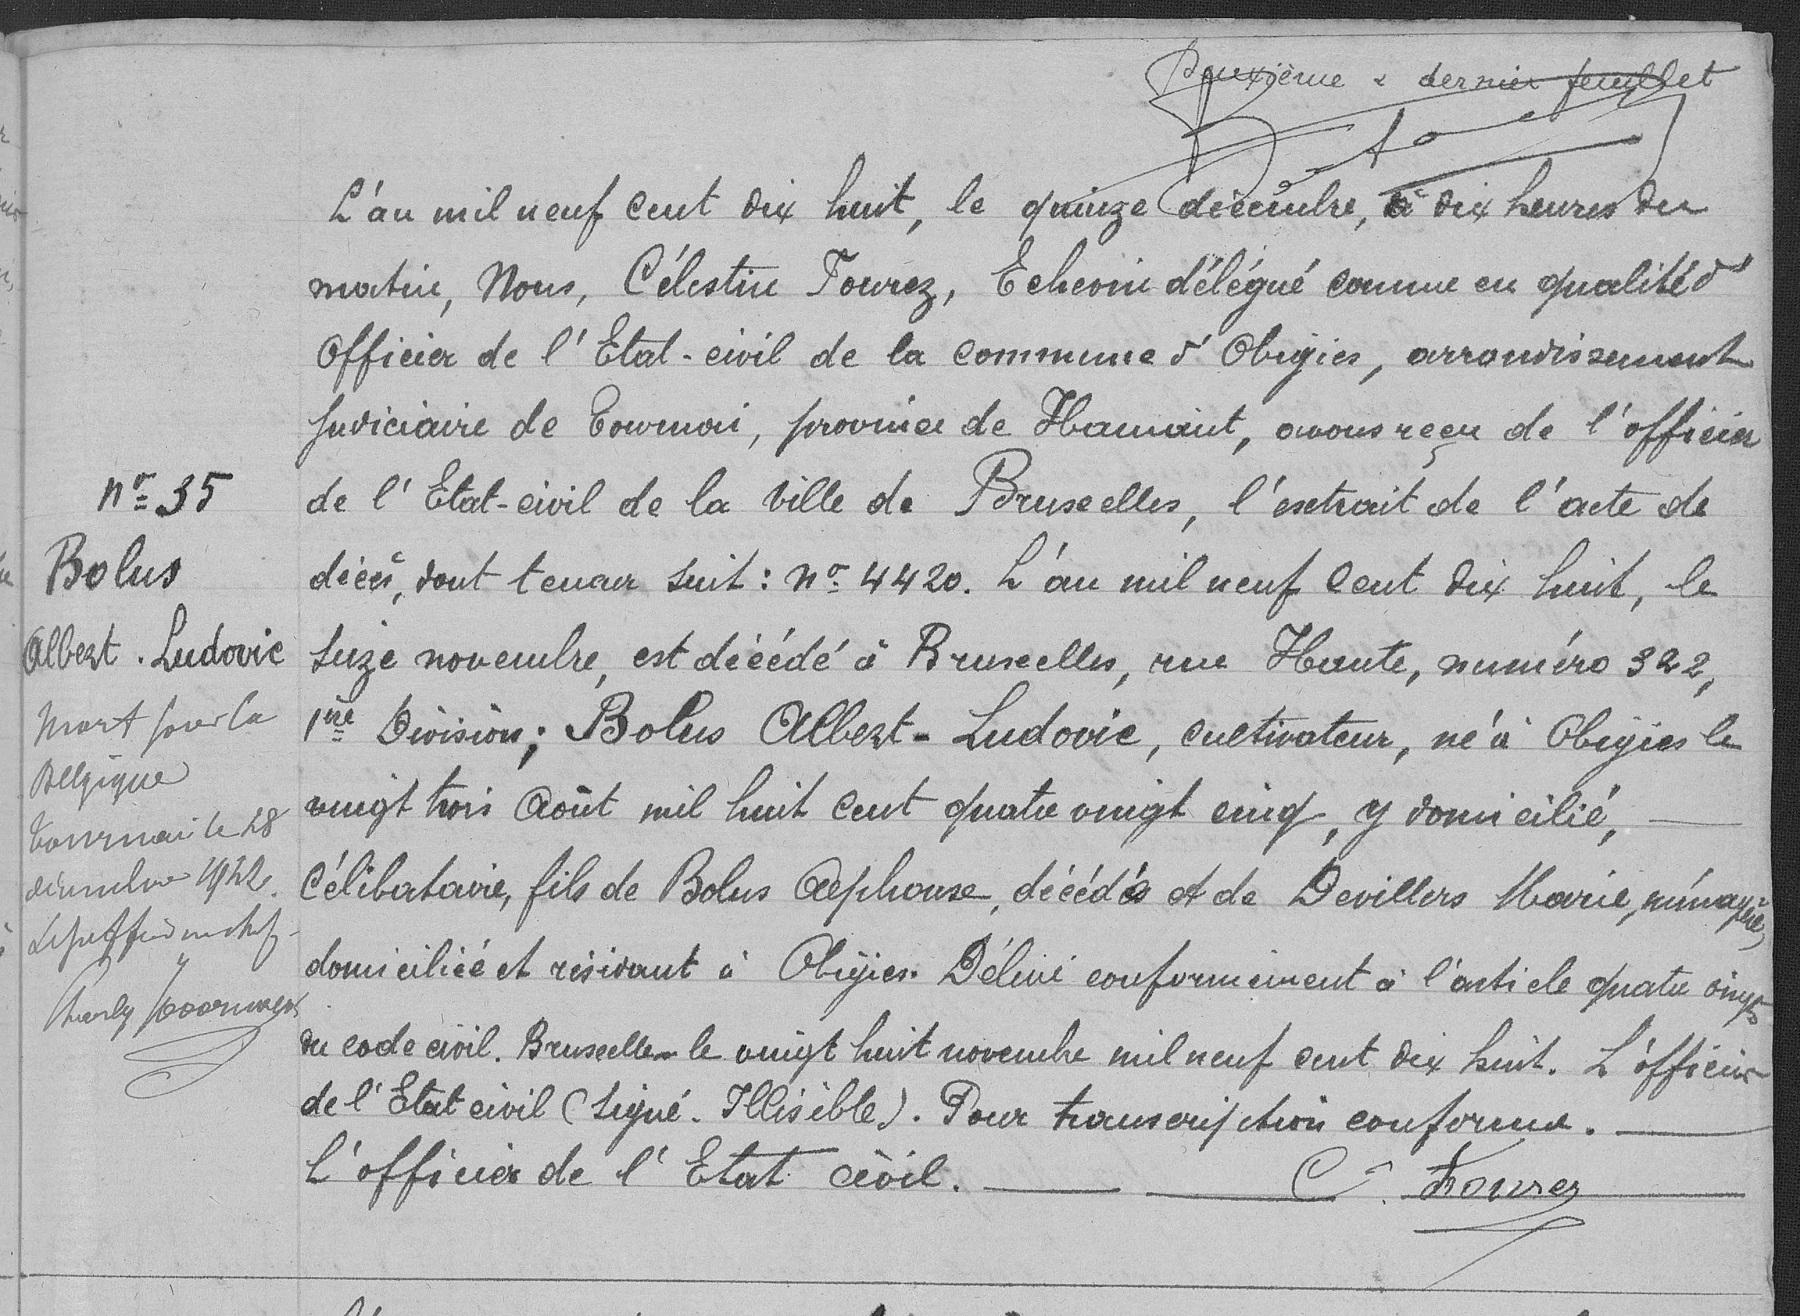 Deuxième & dernier feuillet
L'an mil neuf cent dix huit, le quinze décembre, à dix heures du
matin, Nous, Célestin Fourez, Echevin délégué comme en qualité d'
Officier de l'Etat-civil de la commune d'Obigies, arrondissement
judiciaire de Tournai, province de Hainaut, avons reçu de l'officier
de l'Etat-civil de la Ville de Bruxelles, l'extrait de l'acte de
décès, dont teneur suit: nº 4420. L'an mil neuf cent dix huit, le
seize novembre, est décédé à Bruxelles, rue Haute, numéro 322,
1ère Division; Bolus Albert-Ludovic, cultivateur, né à Obigies le
vingt trois Août mil huit cent quatre vingt cinq, y domicilié,
Célibataire, fils de Bolus Alphonse, décédé et de Devillers Marie, ménagère,
domiciliée et résidant à Obigies. Délivré conformément à l'article quatre vingt
du code civil. Bruxelles le vingt huit novembre mil neuf cent dix huit. L'officier
de l'Etat civil (Signé. Illisible). Pour transcription conforme.
L'officier de l'Etat civil. C. Fourez
nº 35
Bolus
Albert. Ludovic
Mort pour la
Belgique
Tournai le 28
décembre 1922.